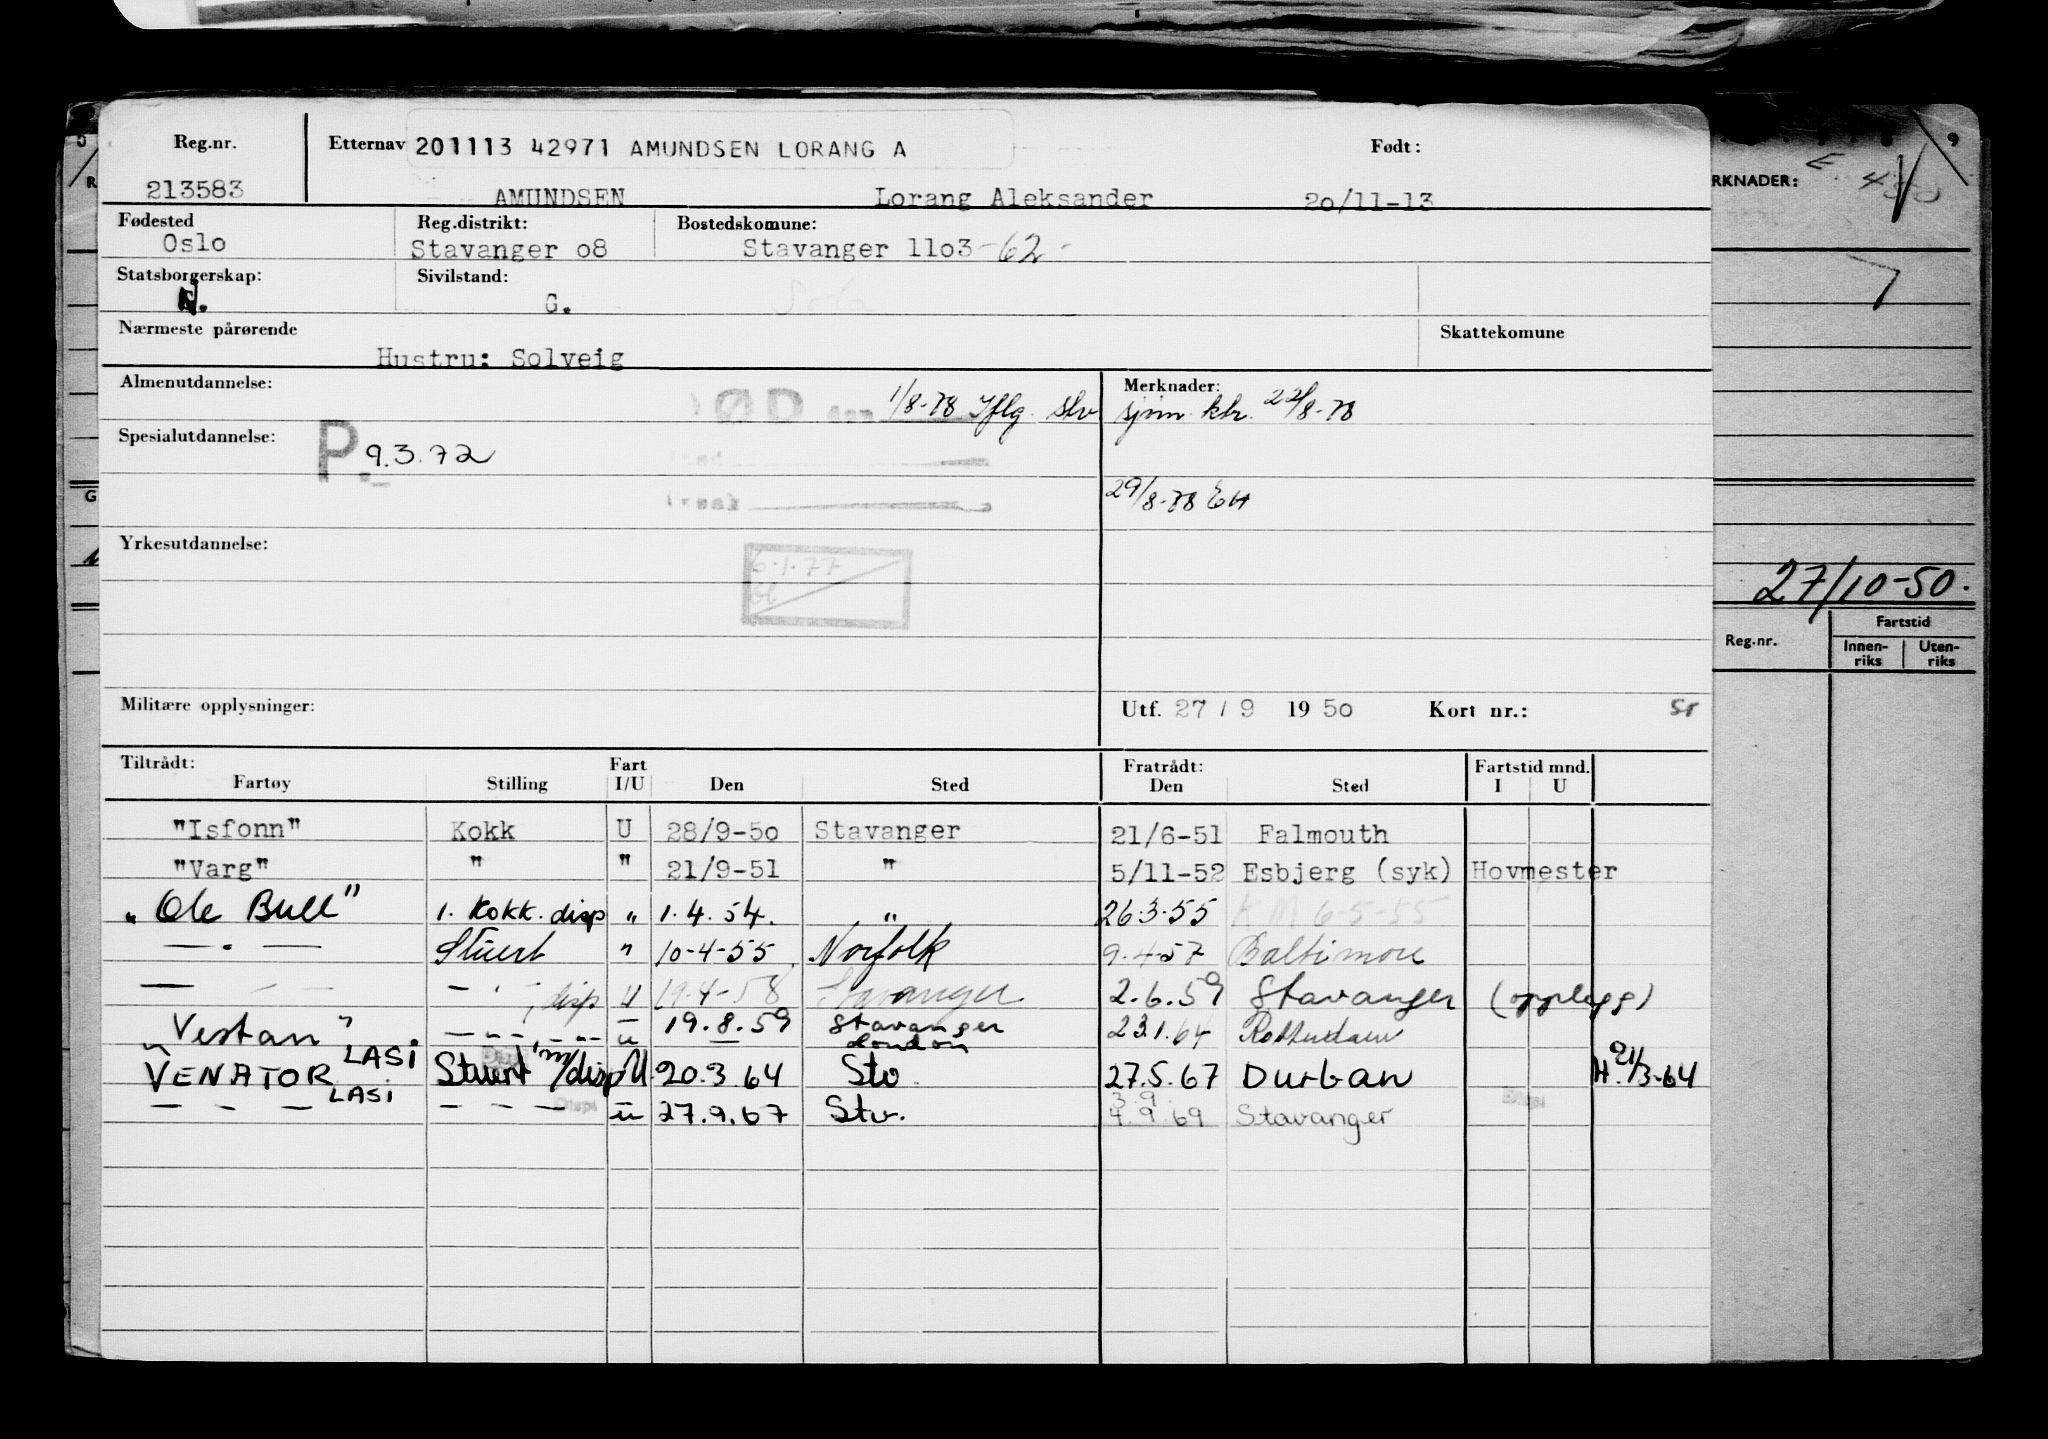 Reg.nr. Etternav 201113 42971 AMUNDSEN LORANG A Født:
213583 AMUNDSEN Lorang Aleksander 2o/11-13
Fødested Reg.distrikt: Bostedskomune:
Oslo Stavanger o8 Stavanger 11o3 -62-
Statsborgerskap: Sivilstand:
N. G.
Nærmeste pårørende Skattekomune
Hustru: Solveig
Almenutdannelse: Merknader:
DØD den 1/8-78 Iflg. stv sjøm. ktr. 22/8-78
Spesialutdannelse:
P. 9.3.72
29/8-78 EH
Yrkesutdannelse:
6.1.77
Militære opplysninger: Utf. 27 / 9 19 5o Kort nr.: Sr
Tiltrådt: Fart Fratrådt: Fartstid mnd.
Fartøy Stilling I/U Den Sted Den Sted I U
"Isfonn" Kokk U 28/9-5o Stavanger 21/6-51 Falmouth
"Varg" " " 21/9-51 " 5/11-52 Esbjerg (syk) Hovmester
"Ole Bull" 1. Kokk. disp " 1.4.54. " 26.3.55 KM 6-5-55
— . — Stuert " 10-4-55 Norfolk 9.4.57 Baltimore
— — — - . - , disp U 19-4-58 Stavanger 2.6.59 Stavanger (opplegg)
"Vestan" — - - - — - - u 19.8.59 Stavanger 23.1.64 Rotterdam
London
LASI
VENATOR Stuert m/disp U 20.3.64 Stv. 27.5.67 Durban H. 21/3-64
LASI
— - - — — - - — Disp u 27.9.67 Stv. 4.9.69 Stavanger
3.9.
RKNADER:
27/10-50.
Fartstid
Reg.nr. Innen-
riks Uten-
riks